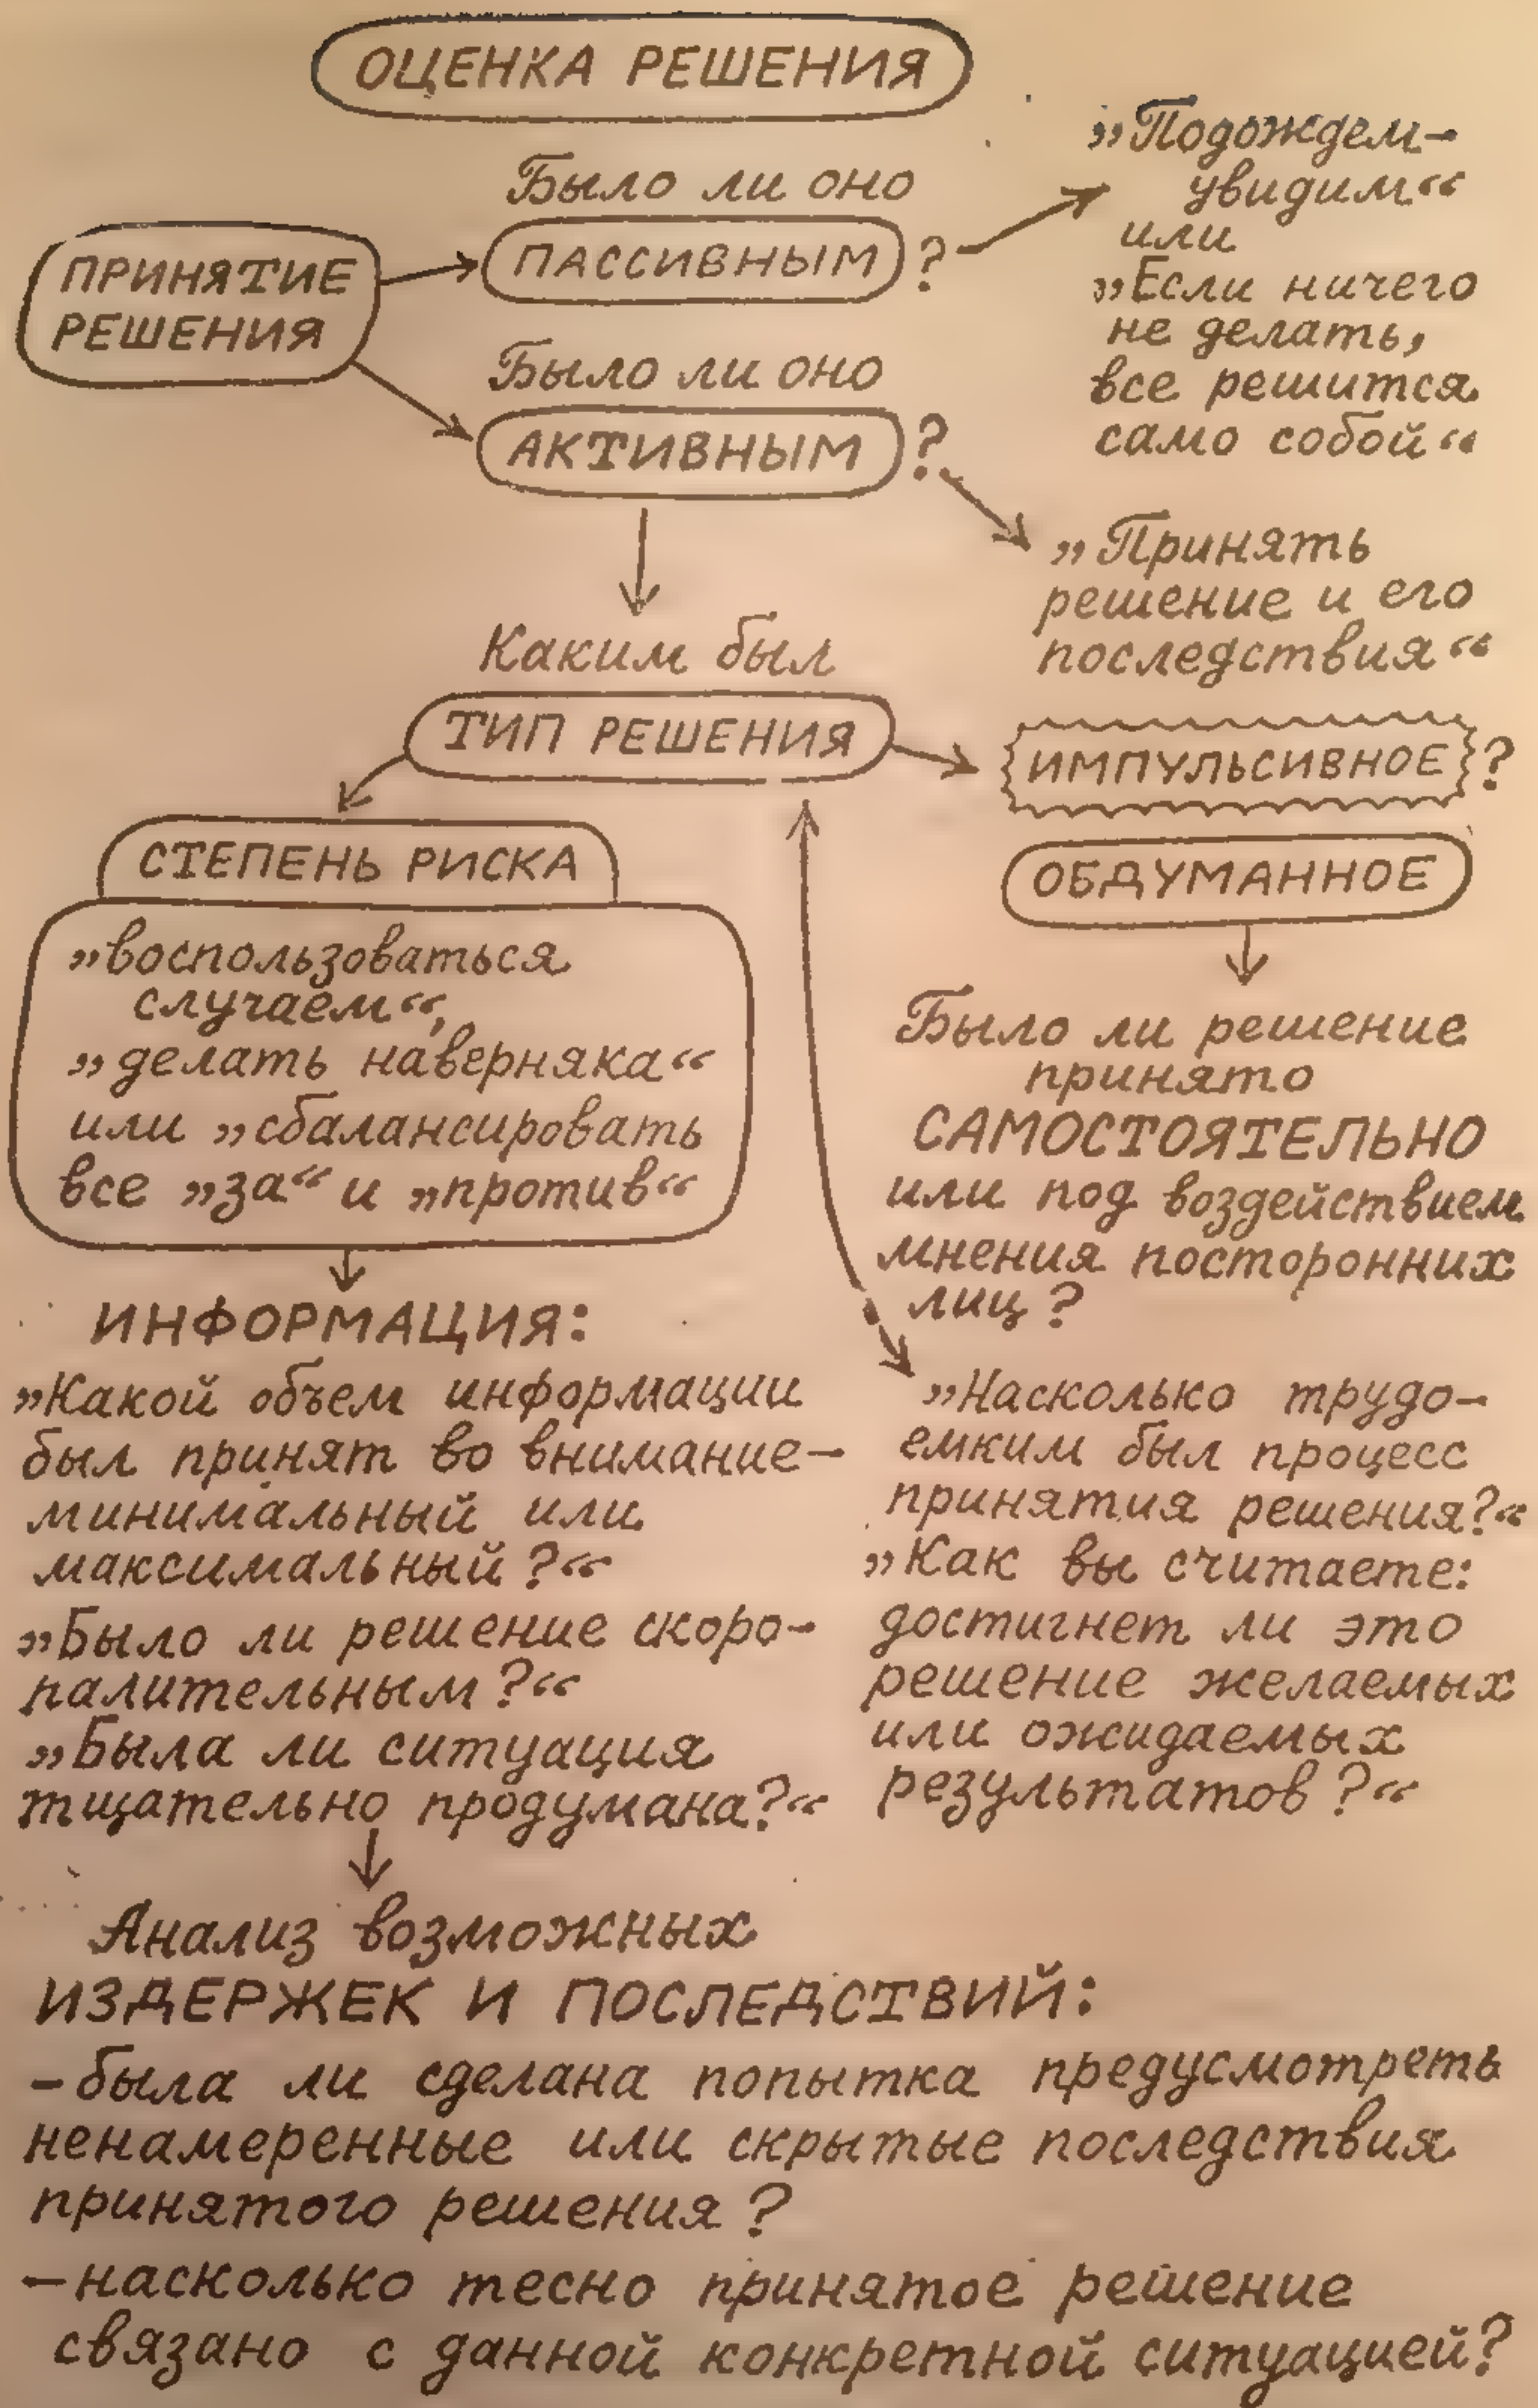 ОЦЕНКА РЕШЕНИЯ
ПРИНЯТИЕ
РЕШЕНИЯ
Было ли оно
ПАССИВНЫМ ?
„Подождем-
увидим“
или
„Если ничего
не делать,
все решится
само собой“
Было ли оно
АКТИВНЫМ ?
„Принять
решение и его
последствия“
Каким был
ТИП РЕШЕНИЯ
ИМПУЛЬСИВНОЕ ?
ОБДУМАННОЕ
Было ли решение
принято
САМОСТОЯТЕЛЬНО
или под воздействием
мнения посторонних
лиц ?
СТЕПЕНЬ РИСКА
„воспользоваться
случаем“,
„делать наверняка“
или „сбалансировать
все „за“ и „против“
ИНФОРМАЦИЯ:
„Какой объем информации
был принят во внимание-
минимальный или
максимальный ?“
„Было ли решение скоро-
палительным ?“
„Была ли ситуация
тщательно продумана?“
„Насколько трудо-
емким был процесс
принятия решения?“
„Как вы считаете:
достигнет ли это
решение желаемых
или ожидаемых
результатов ?“
Анализ возможных
ИЗДЕРЖЕК И ПОСЛЕДСТВИЙ:
-была ли сделана попытка предусмотреть
ненамеренные или скрытые последствия
принятого решения ?
-насколько тесно принятое решение
связано с данной конкретной ситуацией?